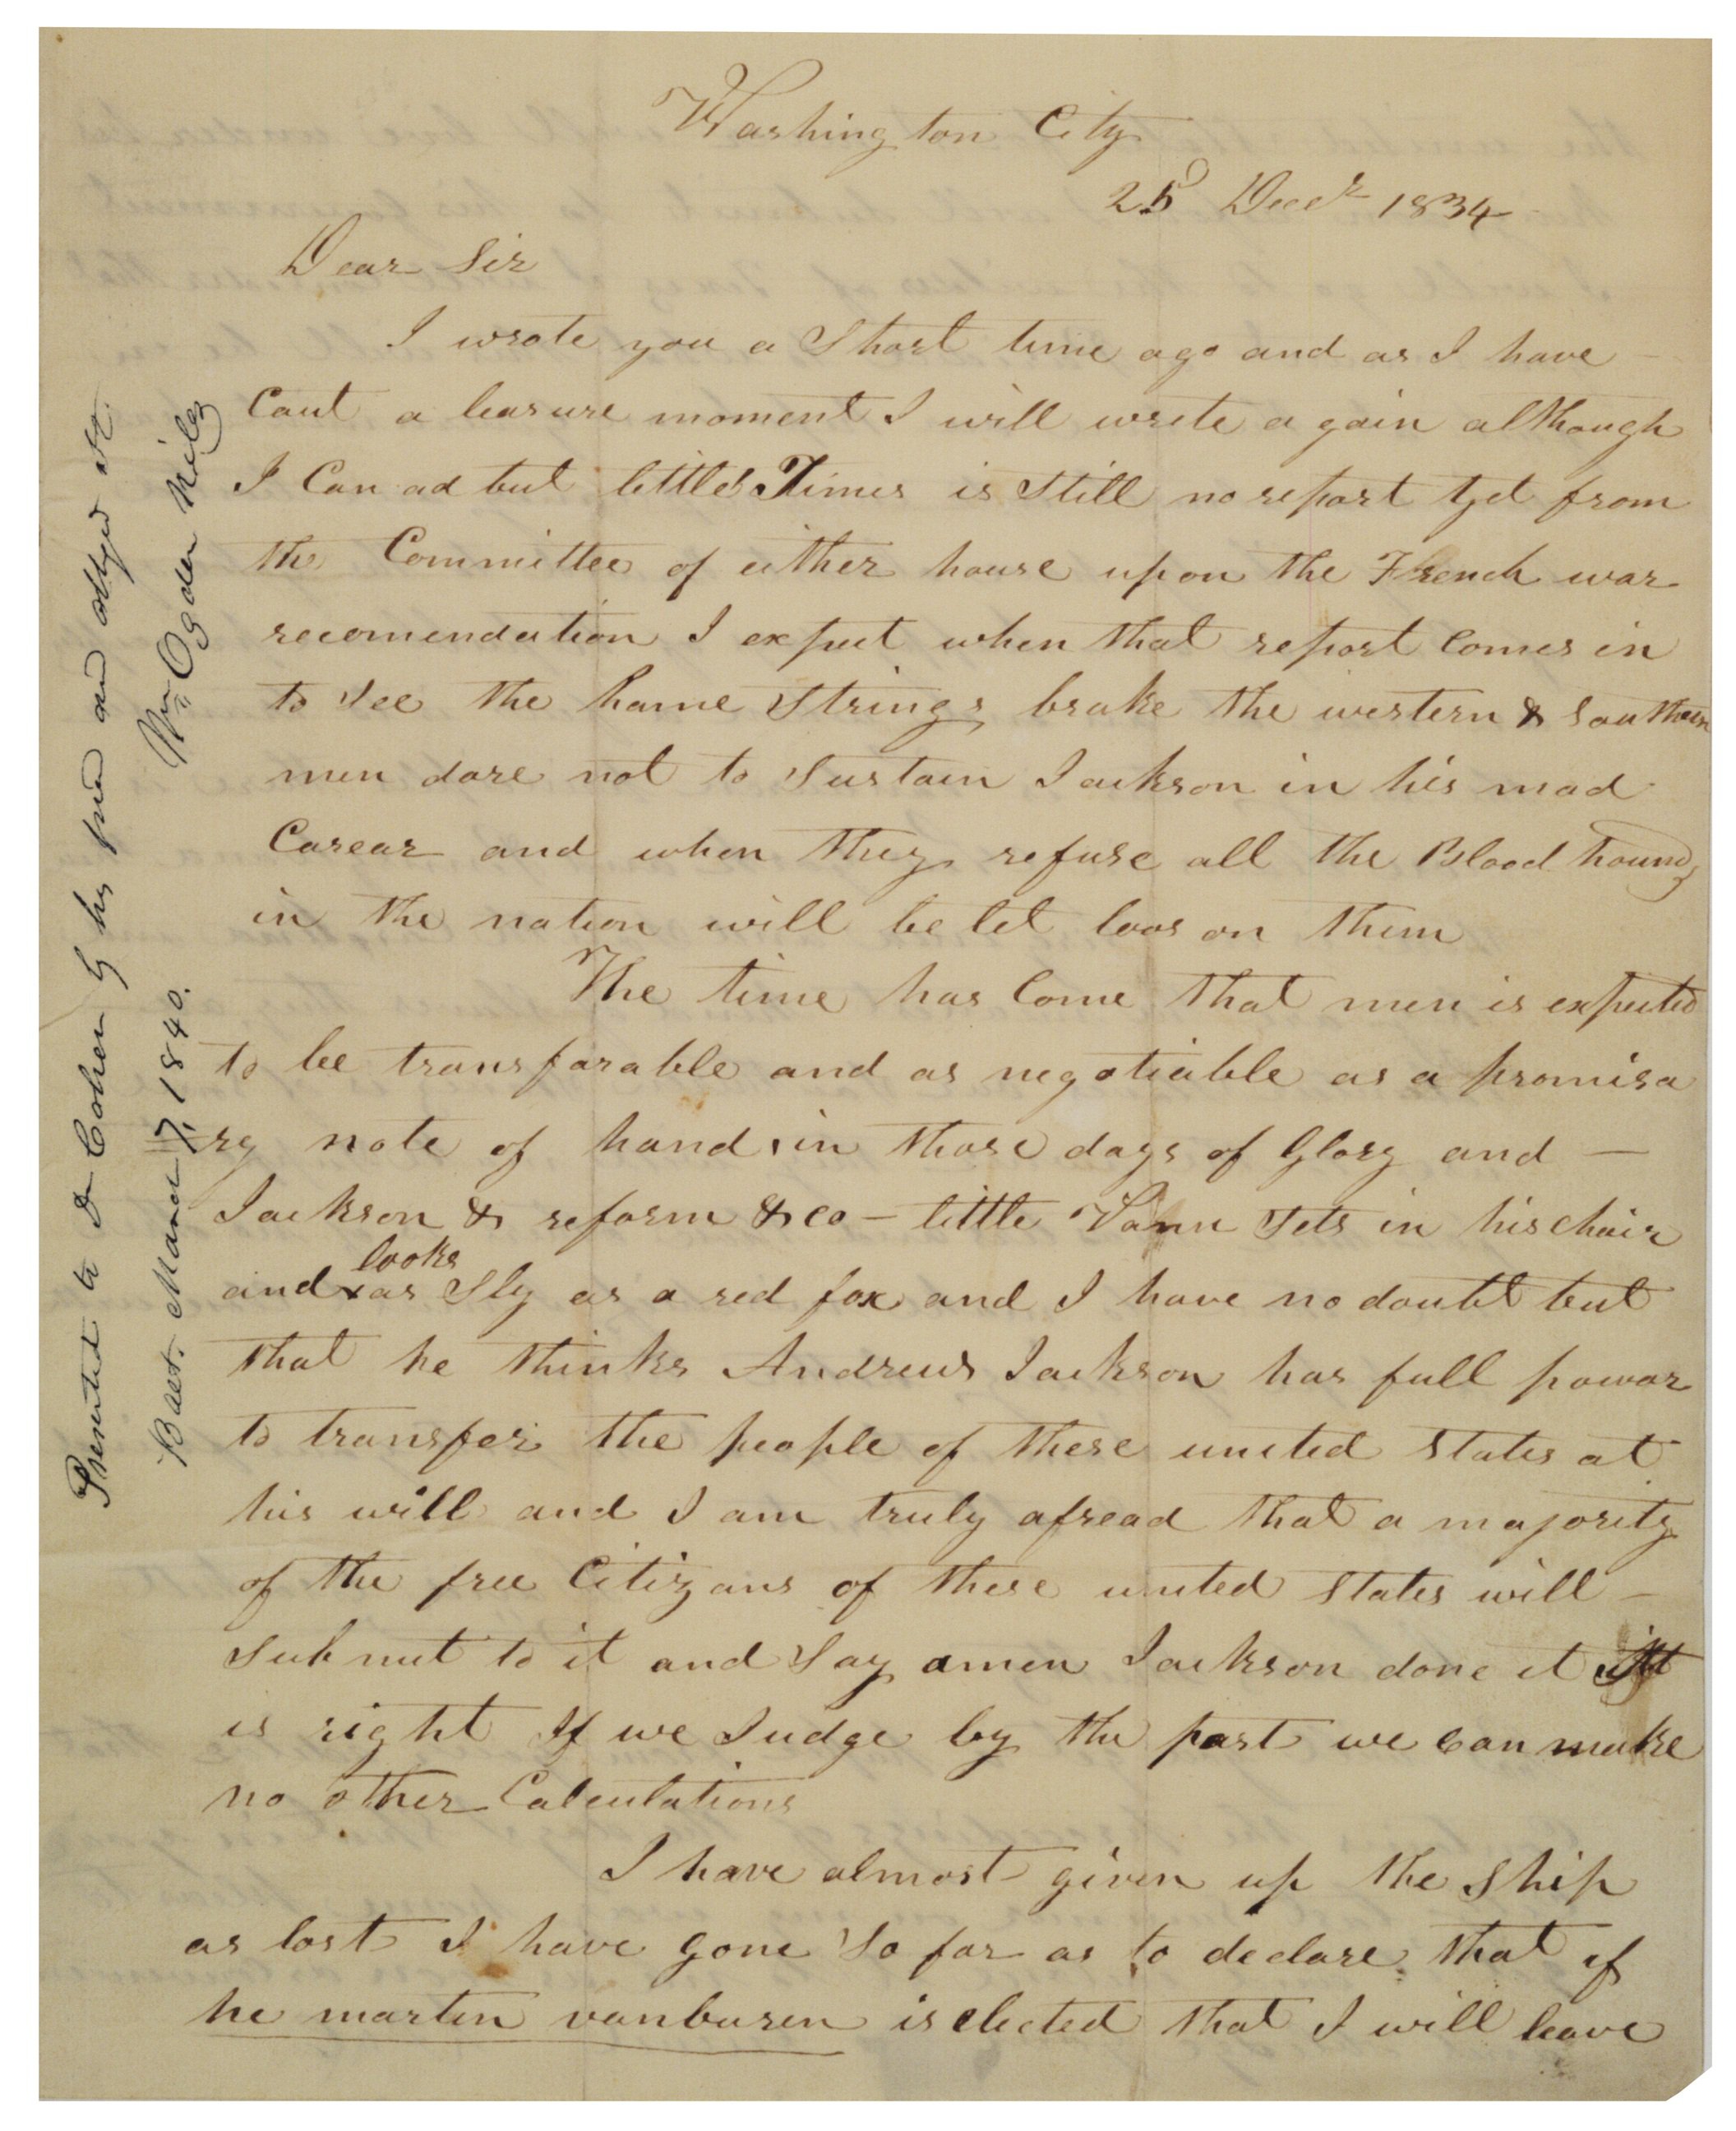 Washington City
25 Decr 1834
Dear Sir
I wrote you a Short time ago and as I have —
Caut a leasure moment I will write a gain although
I Can ad but little Times is Still no report Yet from
the Committee of either house upon the French war
recomendation I expect when that report Comes in
to See the hame Strings brake the western & Southern
men dare not to Sustain Jackson in his mad
Carear and when they refuse all the Blood hounds
in the nation will be let loos on them
The time has Come that men is expected
to be transfarable and as negotiable as a promisa
ry note of hand, in those days of Glory and —
Jackson & reform & co — little Vann Sets in his chair
looks
and x as Sly as a red fox and I have no doubt but
that he thinks Andrew Jackson has full powar
to transfer the people of these united States at
his will and I am truly afread that a majority
of the free Citizans of these united States will —
Submit to it and Say amen Jackson done it it
is right If we Judge by the past we can make
no other Calculations
I have almost given up the Ship
as lost I have gone So far as to declare that if
he martin vanburen is elected that I will leave
Presented to Dr Cohen by his friend and obliged st.
Wm Ogden Niles
Balt. March 7, 1840.